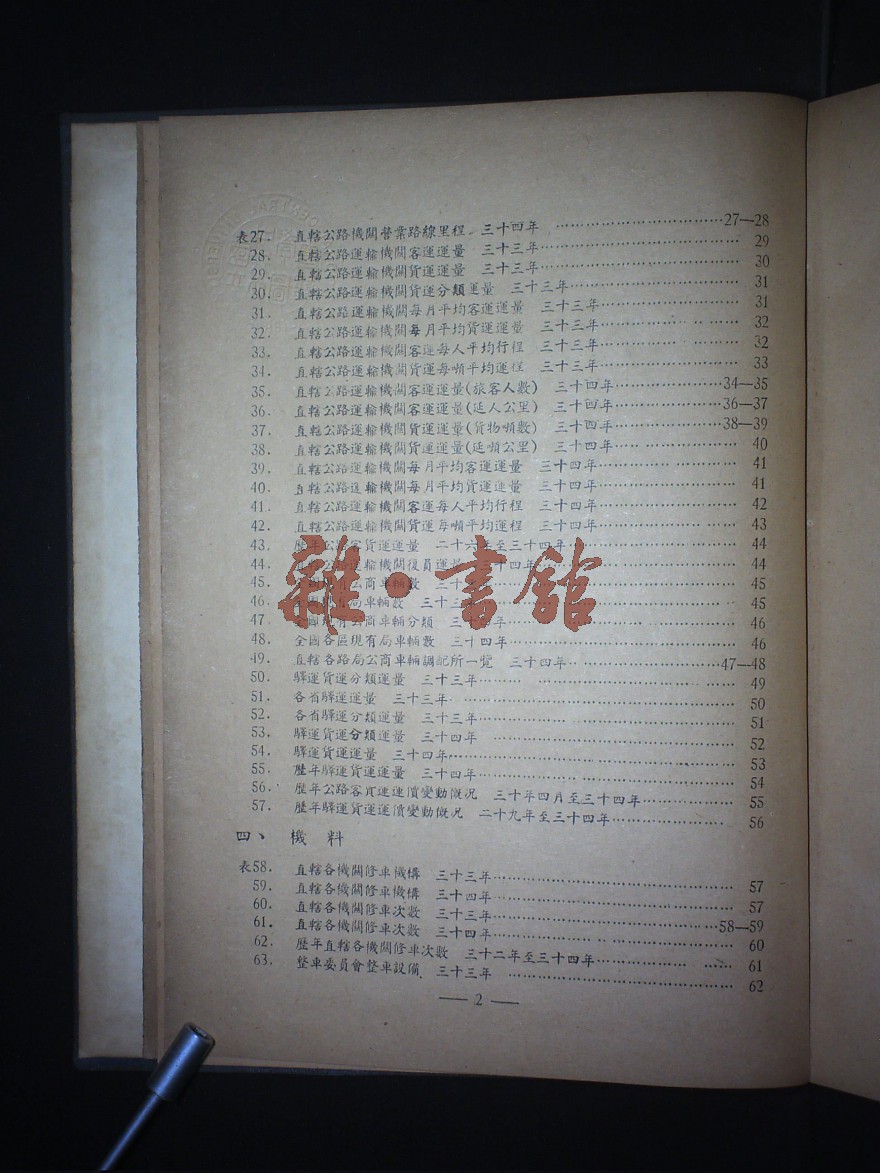 表27. 直轄公路機關營業路線里程 三十四年 ……27—28
28. 直轄公路運輸機關客運運量 三十三年 ……29
29. 直轄公路運輸機關貨運運量 三十三年 ……30
30. 直轄公路運輸機關貨運分類運量 三十三年 ……31
31. 直轄公路運輸機關每月平均客運運量 三十三年 ……31
32. 直轄公路運輸機關每月平均貨運運量 三十三年 ……32
33. 直轄公路運輸機關客運每人平均行程 三十三年 ……32
34. 直轄公路運輸機關貨運每噸平均運程 三十三年 ……33
35. 直轄公路運輸機關客運運量(旅客人數) 三十四年 ……34—35
36. 直轄公路運輸機關客運運量(延人公里) 三十四年 ……36—37
37. 直轄公路運輸機關貨運運量(貨物噸數) 三十四年 ……38—39
38. 直轄公路運輸機關貨運運量(延噸公里) 三十四年 ……40
39. 直轄公路運輸機關每月平均客運運量 三十四年 ……41
40. 直轄公路運輸機關每月平均貨運運量 三十四年 ……41
41. 直轄公路運輸機關客運每人平均行程 三十四年 ……42
42. 直轄公路運輸機關貨運每噸平均運程 三十四年 ……43
43. 歷年公路客貨運運量 二十六年至三十四年 ……44
44. 直轄公路運輸機關復員運量 三十四年 ……44
45. 公商車輛數 ……45
46. 有局車輛數 三十三年 ……45
47. 全國現有公商車輛分類 三十四年 ……46
48. 全國各區現有局車輛數 三十四年 ……46
49. 直轄各路局公商車輛調配所一覽 三十四年 ……47—48
50. 驛運貨運分類運量 三十三年 ……49
51. 各省驛運運量 三十三年 ……50
52. 各省驛運分類運量 三十三年 ……51
53. 驛運貨運分類運量 三十四年 ……52
54. 驛運貨運運量 三十四年 ……53
55. 歷年驛運貨運運量 三十四年 ……54
56. 歷年公路客貨運運價變動概況 三十年四月至三十四年 ……55
57. 歷年驛運貨運運價變動概況 二十九年至三十四年 ……56
四、 機 料
表58. 直轄各機關修車機構 三十三年 ……57
59. 直轄各機關修車機構 三十四年 ……57
60. 直轄各機關修車次數 三十三年 ……58—59
61. 直轄各機關修車次數 三十四年 ……60
62. 歷年直轄各機關修車次數 三十二年至三十四年 ……61
63. 整車委員會整車設備 三十三年 ……62
— 2 —
雜·書館